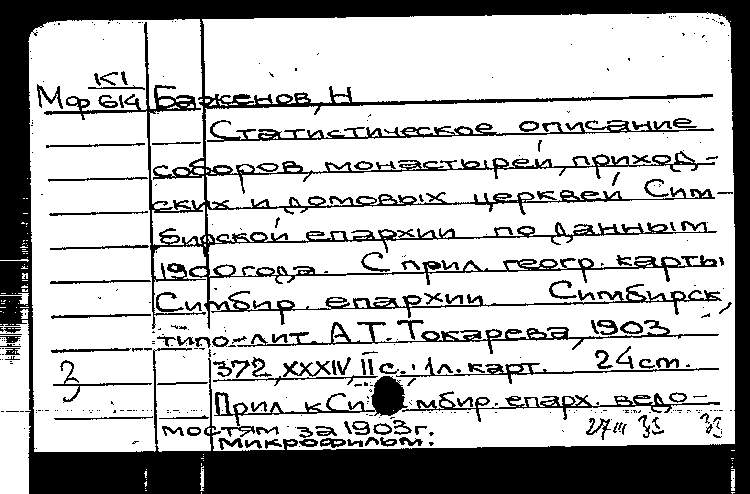 К1
Мф 614 Баженов, Н
Статистическое описание
соборов, монастырей, приход-
ских и домовых церквей Сим-
бирской епархии по данным
1900 года. С прил. геогр. карты
Симбир. епархии. Симбирск,
типо-лит. А.Т. Токарева, 1903.
372, XXXIV, II с.; 1 л. карт. 24 см.
3
Прил. к Симбир. епарх. ведо-
мостям за 1903 г.
27 III 33
микрофильм: